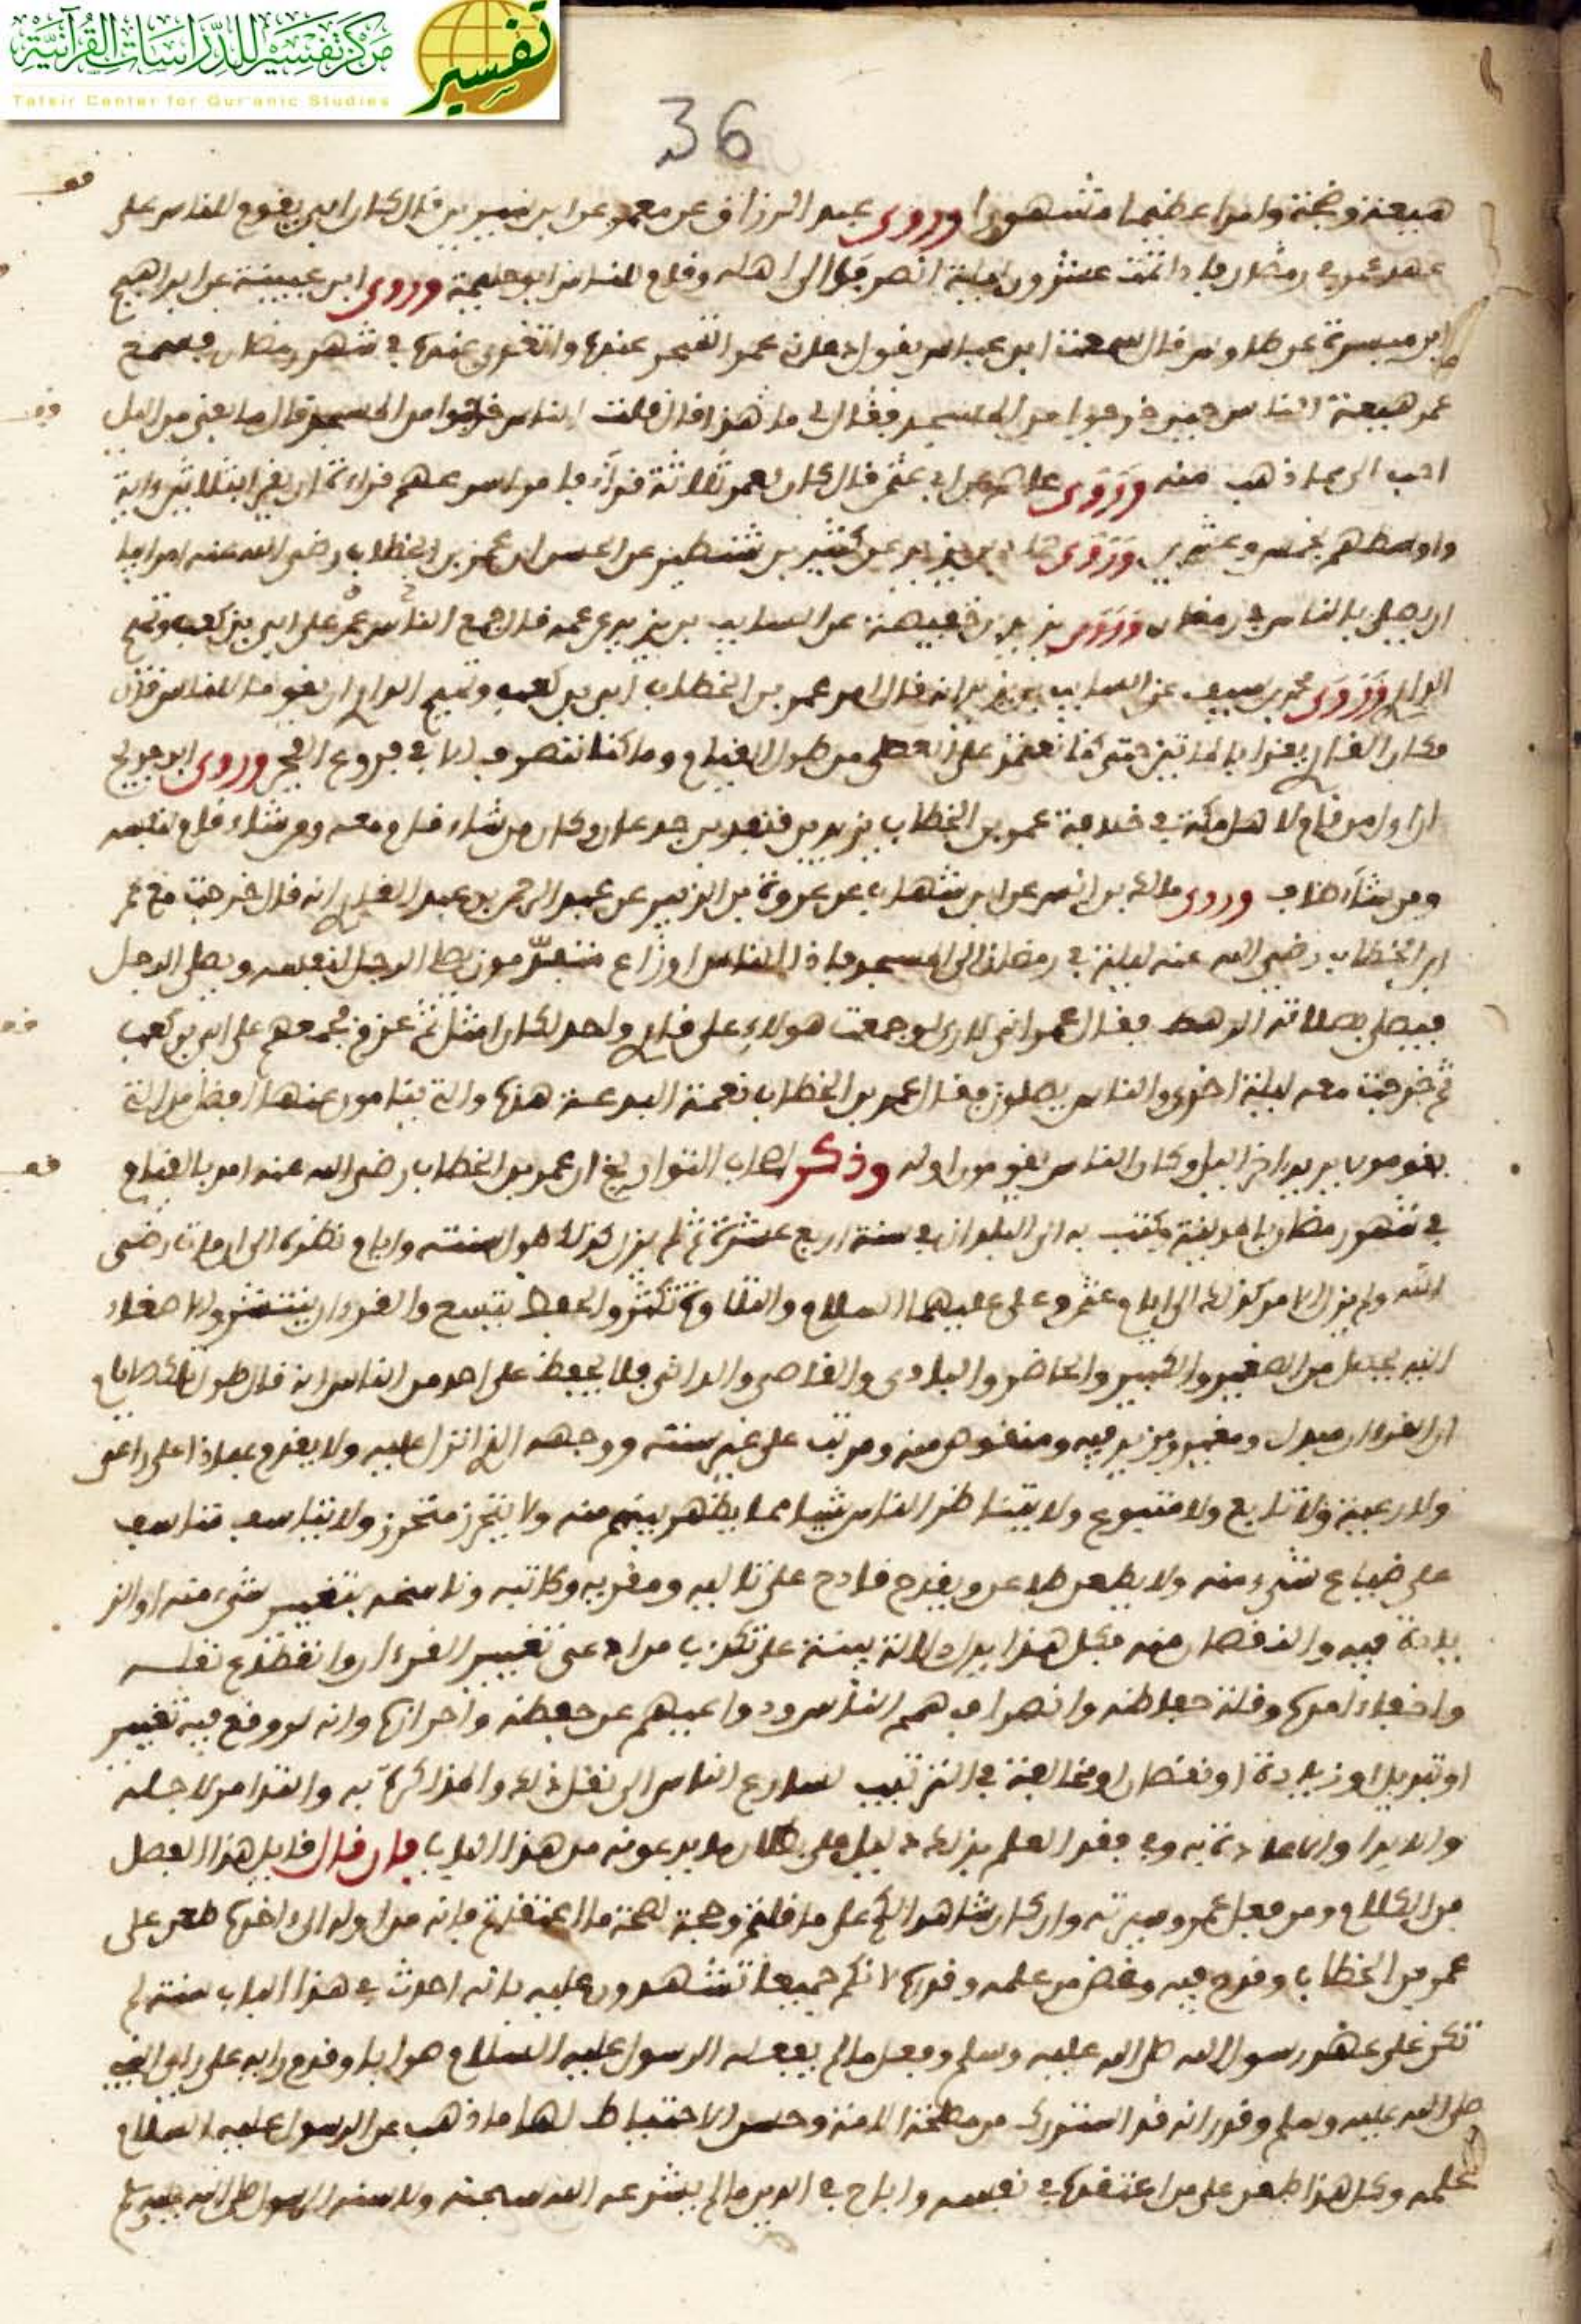 مركز تفسير للدراسات القرآنية
Tafsir Center for Qur'anic Studies
تفسير
36
هيعة وضجة وامرا عظيما مشهورا وروى عبد الرزاق عن معمر عن ابن سيرين قال كان ابي يقوم للناس على
عهد عمر في رمضان فاذا تمت عشرون ليلة انصرف الى اهله وقام للناس ابو حليمة وروى ابن عيينة عن ابراهيم
ابن ميسرة عن طاوس قال سمعت ابن عباس يقول دعاني عمر عندها في شهر رمضان فسمع
عمر هيعة الناس حين خرجوا من المسجد فقال لي ما هذا قال قلت الناس خرجوا من المسجد قال ما بقي من الليل
احب الي مما ذهب منه وروى عاصم عن ابي عثمن قال كان لعمر ثلاثة قرآء فامر اسرعهم قراءة ان يقرا بثلاثين ءاية
واوسطهم بخمس وعشرين وروى عن كثير بن شنظير عن الحسن ان عمر بن الخطاب رضي الله عنه امر ابيا
ان يصلي بالناس في رمضان وروى يزيد بن خصيفة عن السايب بن يزيد عن عمه قال جمع الناس عمر على ابي بن كعب وتميم
الداري وروى محمد بن سيف عن السايب بن يزيد انه قال امر عمر بن الخطاب ابي بن كعب وتميم الداري ان يقوما للناس قال
فكان القاري يقرا بالمائتين حتى كنا نعتمد على العصي من طول القيام وما كنا ننصرف الا في فروع الفجر وروى ابن جريج
ان اول من قام لاهل مكة في خلافة عمر بن الخطاب يزيد بن قنفد بن جدعان وكان من شاء قام معه ومن شاء قام لنفسه
ومن شاء طاف وروى مالك بن انس عن ابن شهاب عن عروة بن الزبير عن عبد الرحمن بن عبد القاري انه قال خرجت مع عمر
ابن الخطاب رضي الله عنه ليلة في رمضان الى المسجد فاذا الناس اوزاع متفرقون يصلي الرجل لنفسه ويصلي الرجل
فيصلي بصلاته الرهط فقال عمر اني لارى لو جمعت هولاء على قاري واحد لكان امثل ثم عزم فجمعهم على ابي بن كعب
ثم خرجت معه ليلة اخرى والناس يصلون فقال عمر بن الخطاب نعمة البدعة هذه والتي ينامون عنها افضل من التي
يقومون يريد اخر الليل وكان الناس يقومون اوله وذكر اصحاب التواريخ ان عمر بن الخطاب رضي الله عنه امر بالقيام
في شهر رمضان بالمدينة وكتب به الى البلدان في سنة اربع عشرة ثم لم يزل كذلك طول سنته وايام نظره الى ان مات رضي
الله ولم يزل الامر كذلك الى ايام عثمن وعلي عليهما السلام والتلاوة تكثر والحفظ يتسع والقرءان ينتشر والاصغاء
اليه يحصل من الصغير والكبير والحاضر والبادي والقاصي والداني فلا يحفظ على احد من الناس انه قال طول تلك الايام
ان القرءان مبدل ومغير ومزيد فيه ومنقوص منه ومرتب على غير سنته ووجهه الذي انزل عليه ولا يقدح بهاذا على
ولا رعية ولا تابع ولا متبوع ولا يتناظر الناس شيئا مما يظهر بينهم منه ولا يتحرز متحرز ولا يتاسف متاسف
على ضياع شيء منه ولا يطعن طاعن ويقدح قادح على تاليه ومقريه وكاتبه وناسخه بتغيير شيء منه او الز
يادة فيه والنقصان منه فكل هذا يدل دلالة بينة على تكذيب من ادعى تغيير القرءان وانقطاع نقله
واخفاء امره وقلة حفاظه وانصراف همم الناس ودواعيهم عن حفظه واحرازه وانه لو وقع فيه تغيير
او تبديل او زيادة او نقصان او مخالفة في الترتيب لسارع الناس الى نقل ذلك والمذاكرة به والتذامر لاجله
والابدا والاعادة به وفي فقد العلم بذلك دليل على بطلان ما يدعونه من هذا الباب فان قال قايل هذا الفصل
من الكلام ومن فعل عمر وسيرته وان كان شاهدا لكم على ما قلتم وحجة لصحة ما اعتقدتم فانه من اوله الى ءاخره طعن على
عمر بن الخطاب وقدح فيه ونقص من علمه وقدره لانكم جميعا تشهدون عليه بانه احدث في هذا الباب سنة لم
تكن على عهد رسول الله صلى الله عليه وسلم وفعل ما لم يفعله الرسول عليه السلام صوابا وقدم رايه على راي النبي
صلى الله عليه وسلم وقدر انه قد استدرك من مصلحة الامة وحسن الاحتياط لها ما ذهب عن الرسول عليه السلام
علمه وكل هذا طعن على من اعتقده في نفسه واباح في الدين ما لم يشرعه الله سبحنه ولا سنه الرسول صلى الله عليه وسلم